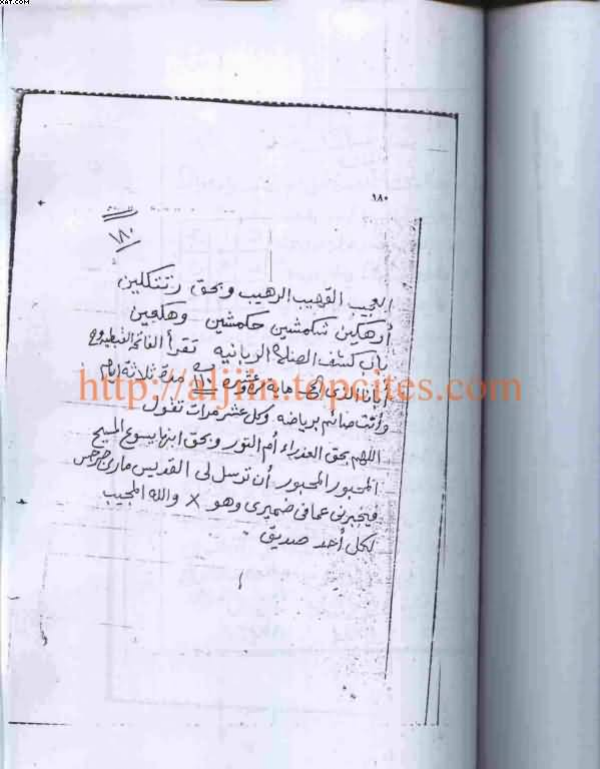 XAT.COM
١٨٠
١٨٠
العجيب القهيب الرهيب وبحق رتنكلين
أرهكين شكمشين حكمشين وهكجين
باب كشف الصلاة الربانيه تقرأ الفاتحة القبطيه وهى
أبانا الذى مائة مرة مدة ثلاثة ايام
وأنت صائم برياضه وكل عشر مرات تقول
اللهم بحق العذراء أم النور وبحق ابنها يسوع المسيح
المحبور المحبور أن ترسل لى القديس مارى جرجس
فيخبرنى عما فى ضميرى وهو × والله المجيب
لكل أحد صديق .
http://aljiin.topcites.com